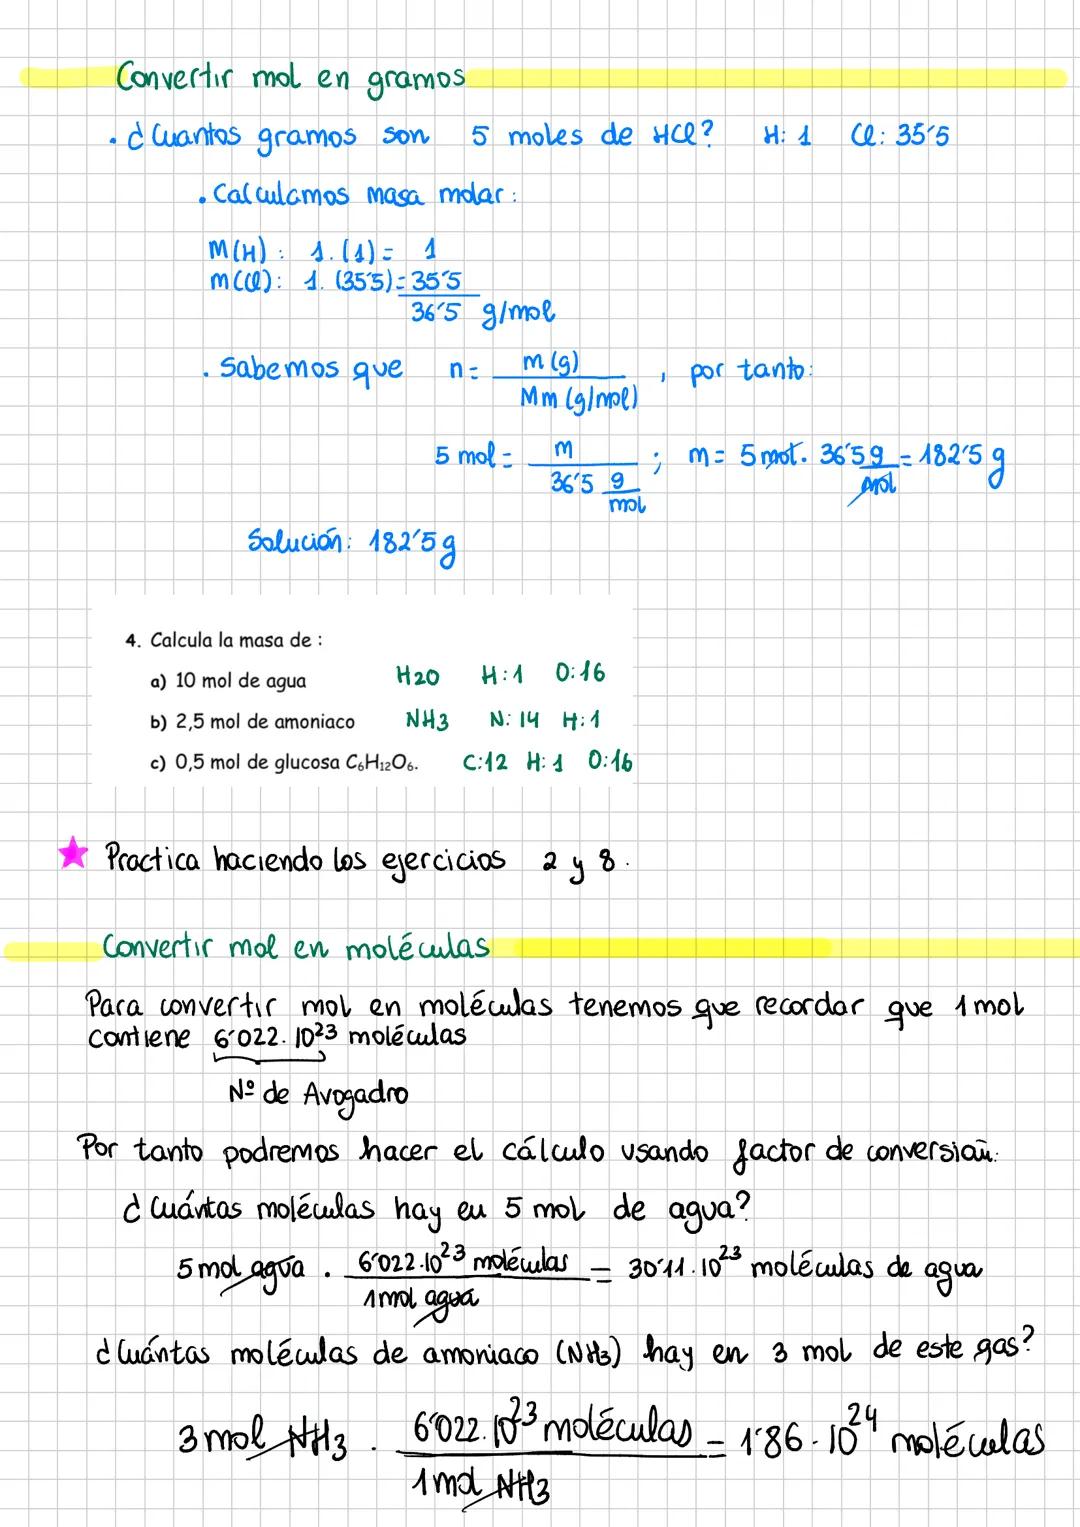 Convertir mol en gramos
• ¿Cuantos gramos son 5 moles de HCl? H: 1 Cl: 35'5
• Calculamos masa molar:
M(H): 1.(1)= 1
m(Cl): 1. (35'5)= 35'5
36'5 g/mol
• Sabemos que n= m(g) / Mm (g/mol) , por tanto:
5 mol = m / 36'5 g/mol ; m= 5 mol. 36'5 g/mol = 182'5 g
Solución: 182'5 g
4. Calcula la masa de :
a) 10 mol de agua H2O H:1 O:16
b) 2,5 mol de amoniaco NH3 N: 14 H:1
c) 0,5 mol de glucosa C₆H₁₂O₆. C:12 H: 1 O:16
Practica haciendo los ejercicios 2 y 8.
Convertir mol en moléculas
Para convertir mol en moléculas tenemos que recordar que 1 mol
contiene 6'022. 10²³ moléculas
Nº de Avogadro
Por tanto podremos hacer el cálculo usando factor de conversión:
¿Cuántas moléculas hay en 5 mol de agua?
5 mol agua . 6'022.10²³ moléculas / 1 mol agua = 30'11.10²³ moléculas de agua
¿Cuántas moléculas de amoniaco (NH3) hay en 3 mol de este gas?
3 mol NH3 . 6'022.10²³ moléculas / 1 mol NH3 = 1'86.10²⁴ moléculas